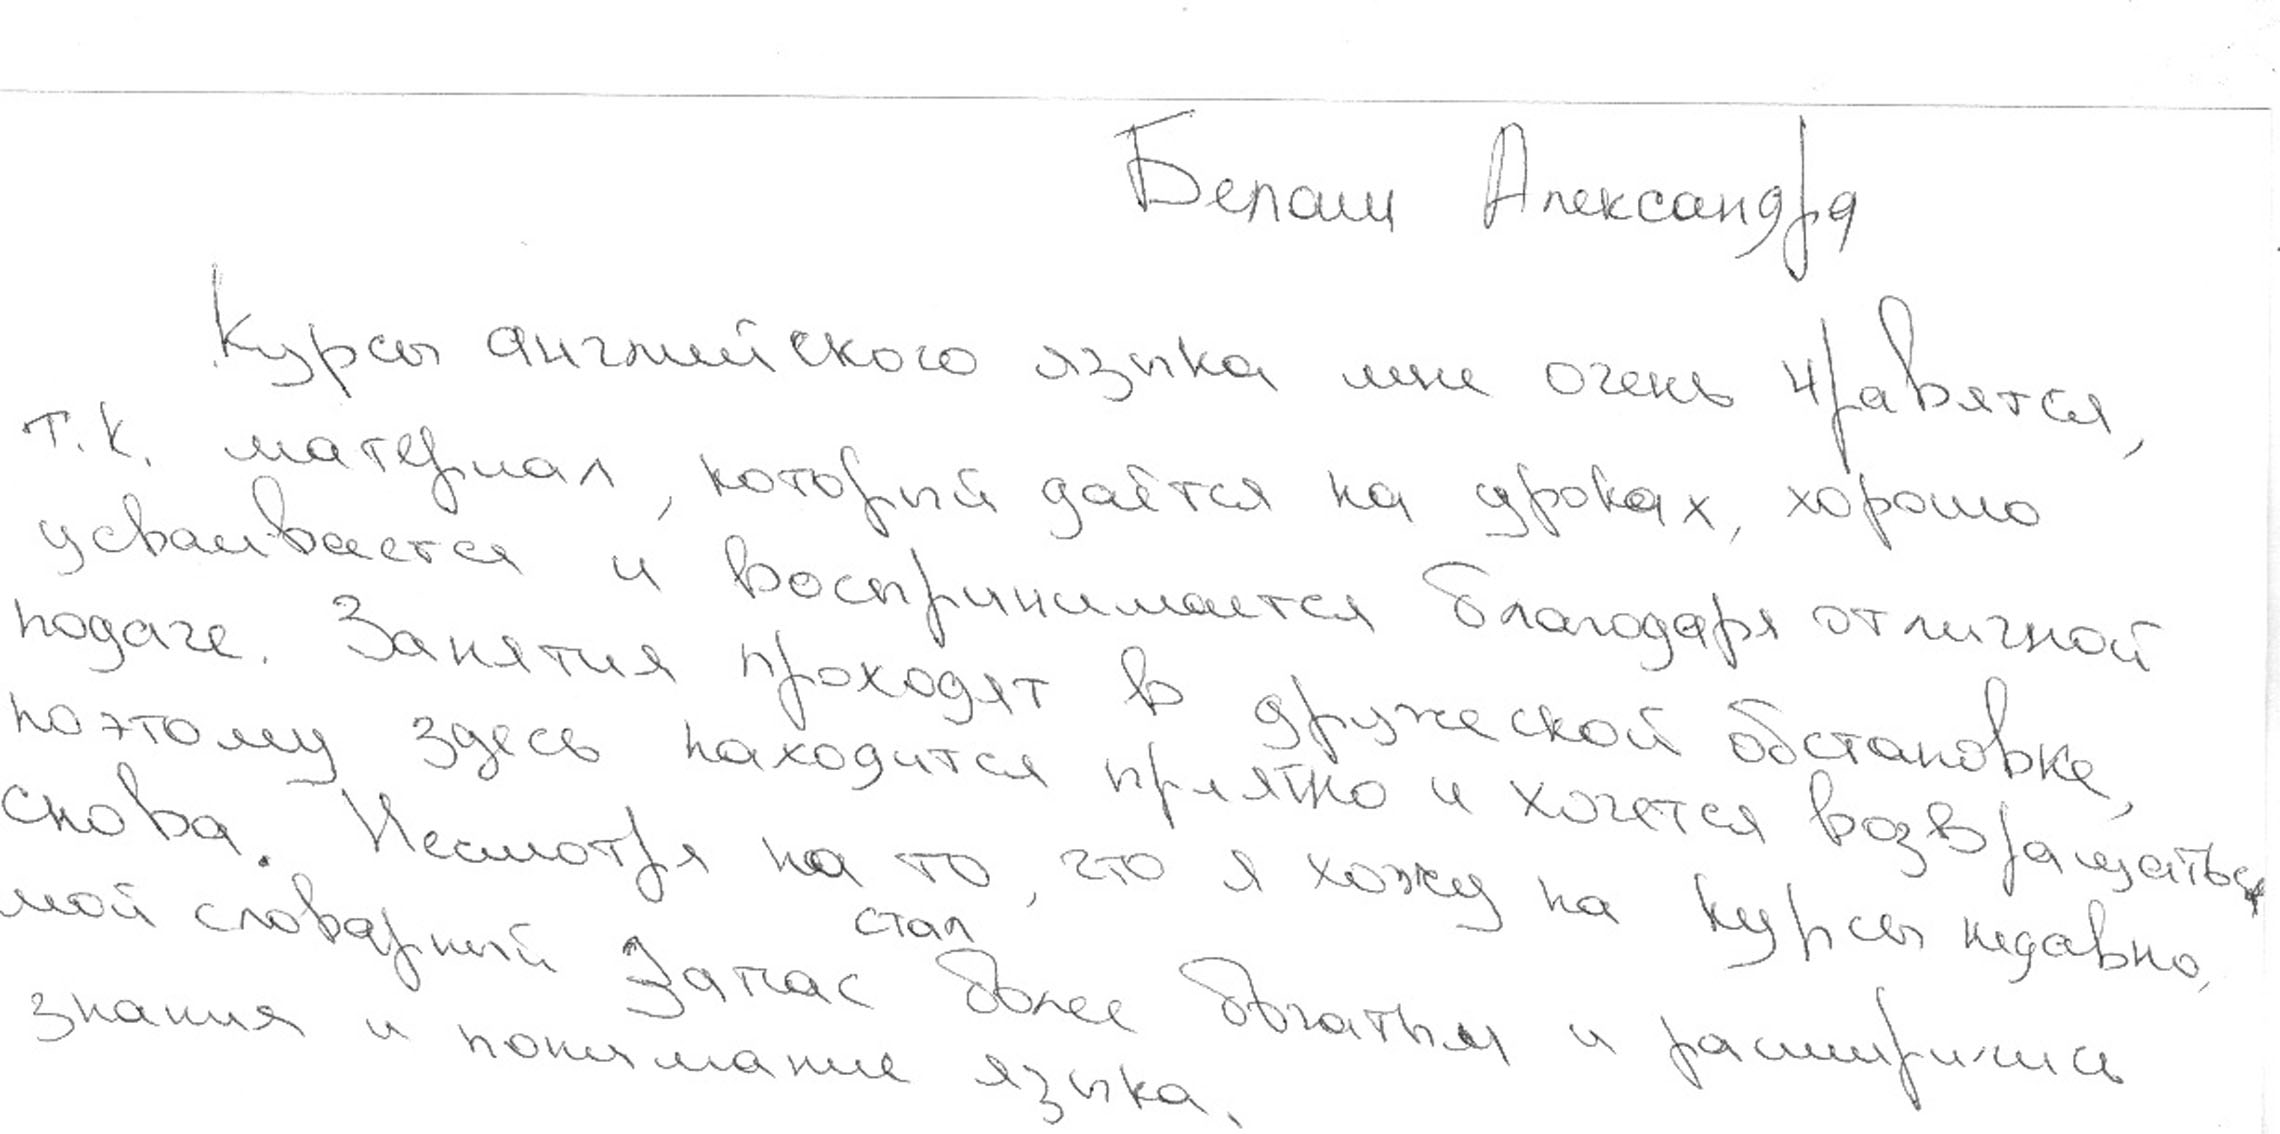 Белаш Александра
Курсы английского языка мне очень нравятся,
т.к. материал, который даётся на уроках, хорошо
усваивается и воспринимается благодаря отличной
подаче. Занятия проходят в дружеской обстановке,
поэтому здесь находится приятно и хочется возвращаться
снова. Несмотря на то, что я хожу на курсы недавно,
мой словарный запас стал более богатым и расширились
знания и понимание языка.